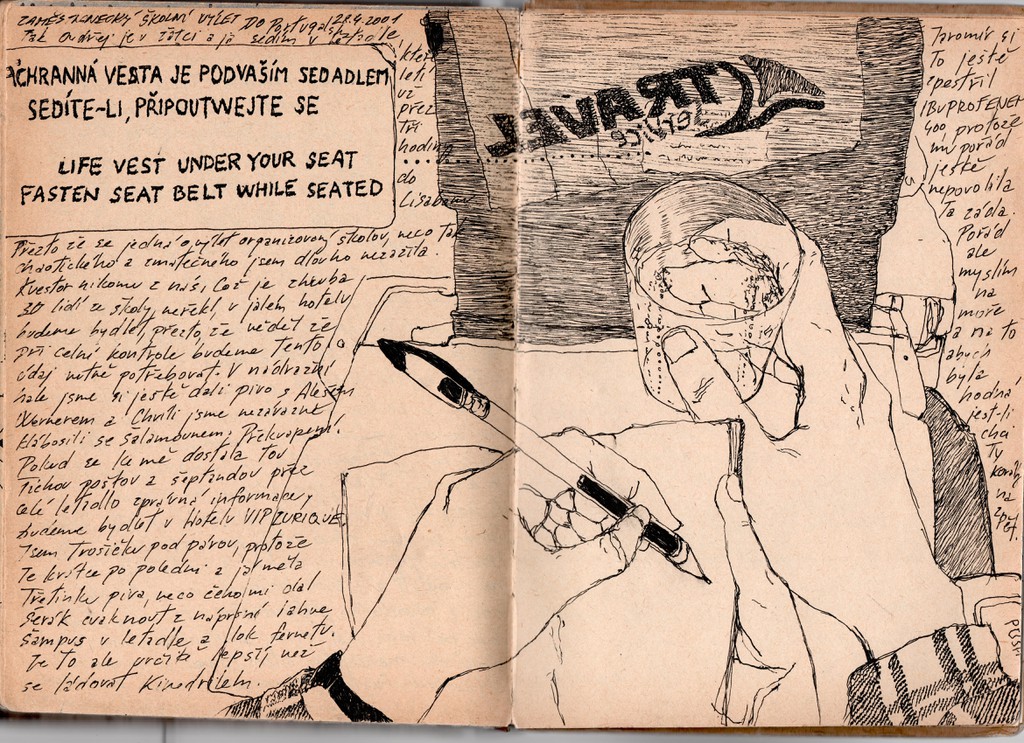 ZAMĚSTNANECKÝ ŠKOLNÍ VÝLET DO Portugalska 28.9.2001
Tak Ondřej je v Žatci a já sedím v letadle,
které
letí
už
přez
tři
hodiny
do
Lisabonu
ÁCHRANNÁ VESTA JE POD VAŠÍM SEDADLEM
SEDÍTE-LI, PŘIPOUTWEJTE SE
LIFE VEST UNDER YOUR SEAT
FASTEN SEAT BELT WHILE SEATED
Přezto že se jedná o výlet organizovaný školou, něco tak
chaotického a zmatečného jsem dlouho nezažila.
Kvestor nikomu z nás, což je zhruba
30 lidí ze školy, neřekl, v jakém hotelu
budeme bydlet přezto, že věděl že
při celní kontrole budeme tento
údaj nutně potřebovat. V nádražní
hale jsme si ještě dali pivo s Alešem
a Chvíli jsme nezávazně
se Šalamounem, Překvapení.
Pokud se ke mě dostala tou
tichou poštou a šeptandou přez
celé letadlo zprávná informace,
budeme bydlet v Hotelu VIP ZURIQUE.
Jsem trošičku pod párou, protože
je krátce po poledni a já měla
třetinku piva, něco čeho mi dal
Šerák cvaknout z náprsní láhve
šampus v letadle a lok fernetu.
Je to ale určitě lepší než
se ládovat Kinedrilem.
TRAVEL
SERVICE
Jaromír si
to ještě
zpestřil
IBUPROFENEM
400, protože
mu pořád
ještě
nepovolila
ta záda.
Pořád
ale
myslím
na
moře
a na to
abych
byla
hodná
jest-li
chci
ty
korále
na
zpět.